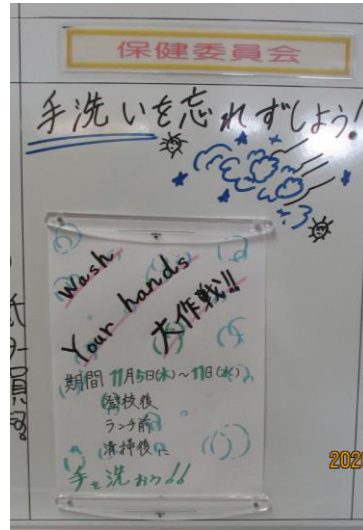 保健委員会
手洗いを忘れずしよう!
wash
Your hands
大作戦!!
期間 11月5日(水)~11日(火)
登校後
ランチ前
清掃後に
手を洗おう!!
員